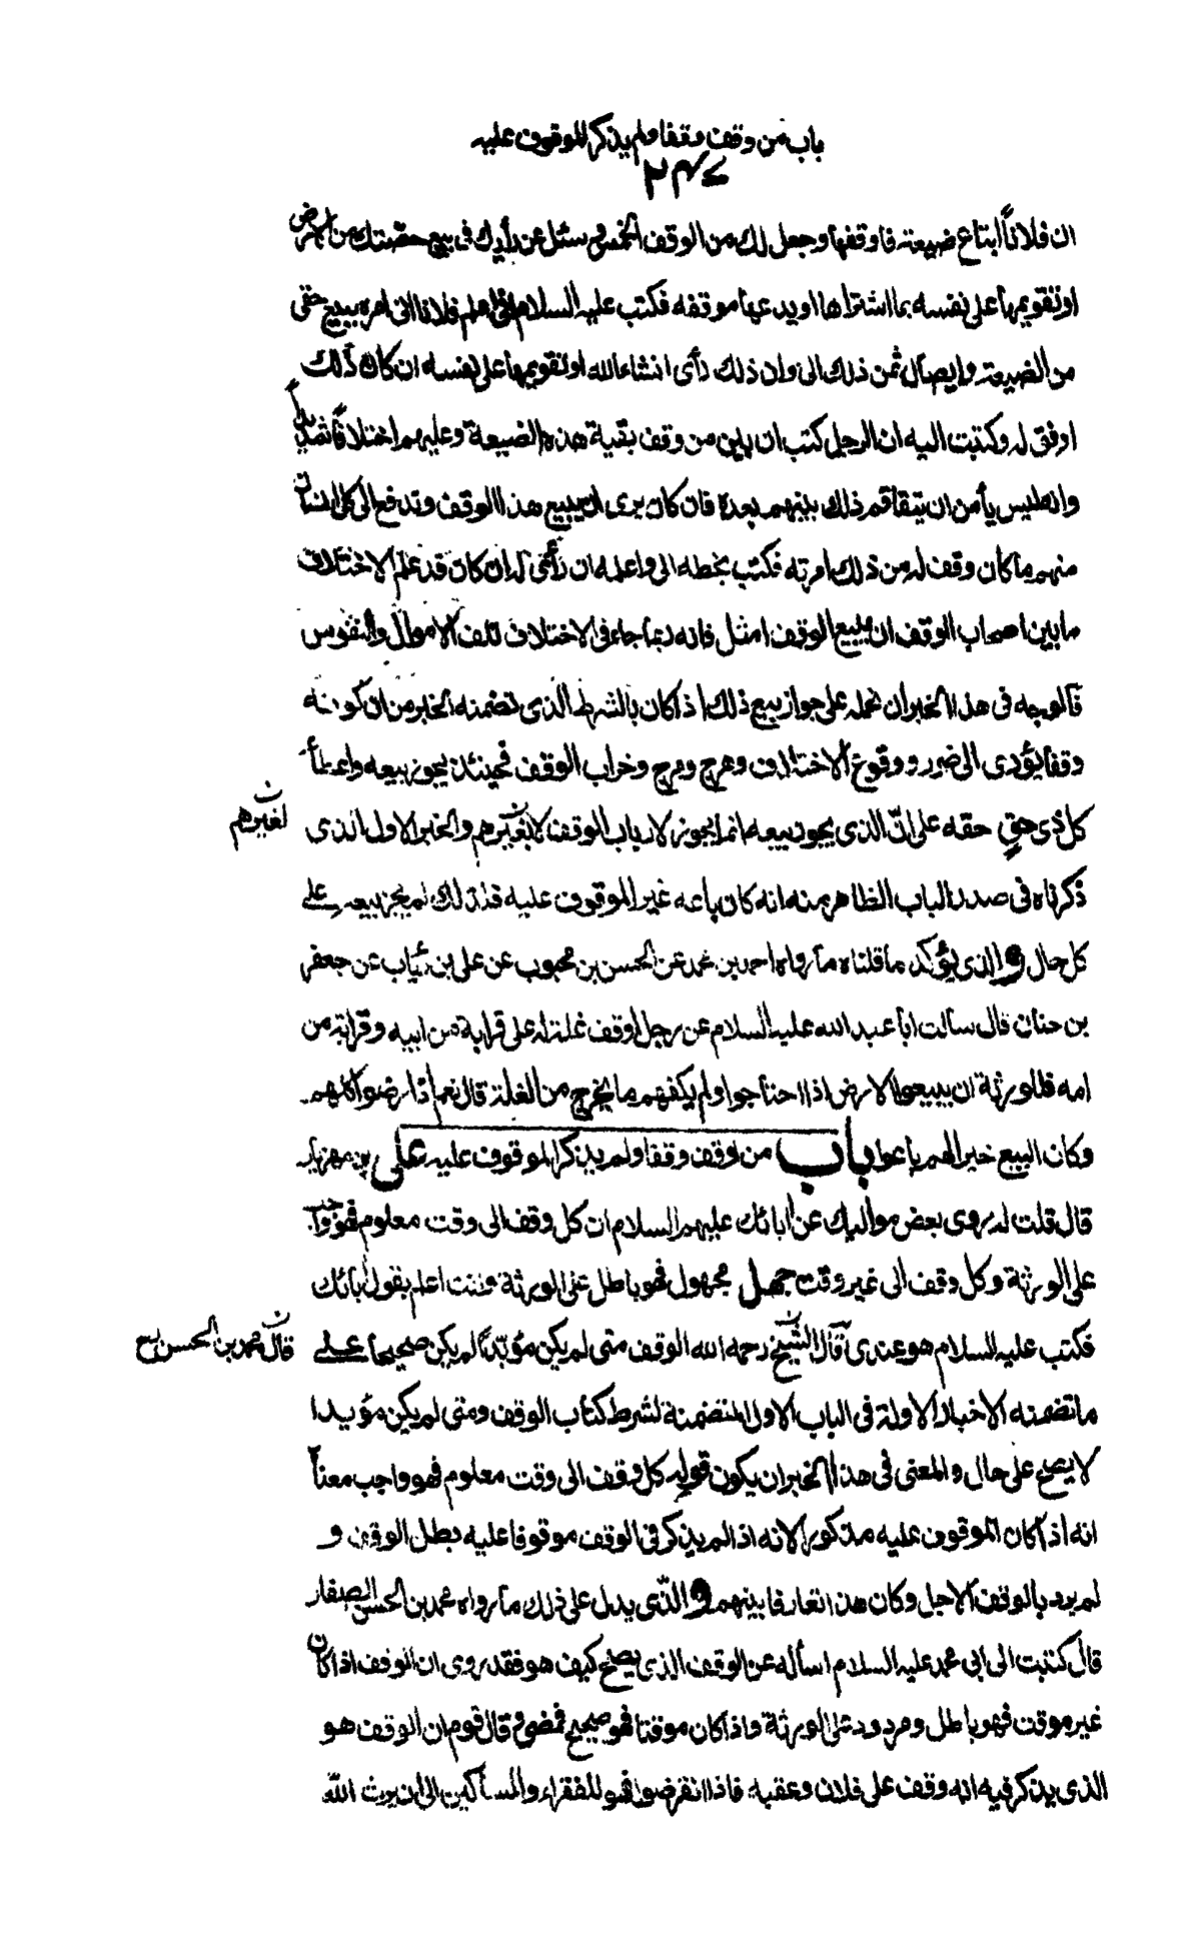 باب من وقف وقفا ولم يذكر الموقوف عليه
٢٤٧
ان فلاناً ابتاع ضيعة فاوقفها وجعل لك من الوقف الخمس و سئل عن رأيك فى بيع حصتك من الارض
او تقويمها على نفسه بما اشتراها او يدعها موقفه فكتب عليه السلام الى اعلم فلانا انى امره ببيع حقى
من الضيعة وايصال ثمن ذلك الى وان ذلك رأى انشاء الله او تقويمها على نفسه ان كان ذلك
اوفق له وكتبت اليه ان الرجل كتب ان بين من وقف بقية هذه الضيعة وعليهم اختلافا شديداً
وانه ليس يأمن ان يتفاقم ذلك بينهم بعده فان كان يرى ان يبيع هذا الوقف وتدفع الى كل انسان
منهم ما كان وقف له من ذلك امرته فكتب بخطه الى واعلمه ان رأئى له ان كان قد علم الاختلاف
ما بين اصحاب الوقف ان يبيع الوقف امثل فانه ربما جاء فى الاختلاف تلف الاموال والنفوس
فالوجه فى هذا الخبر ان نحمله على جواز بيع ذلك اذا كان بالشرط الذى تضمنه الخبر من ان كونه
وقفا يؤدى الى ضرر ووقوع الاختلاف وهرج ومرج وخراب الوقف فحينئذ يجوز بيعه واعطاء
كل ذى حق حقه على انّ الذى يجوز بيعه انما يجوز لارباب الوقف لا لغيرهم والخبر الاول الذى
لغيرهم ن
ذكرناه فى صدر الباب الظاهر منه انه كان باعه غير الموقوف عليه فلذلك لم يجز بيعه على
كل حال والذى يؤكد ما قلناه ما رواه احمد بن محمد عن الحسن بن محبوب عن على بن رئاب عن جعفر
بن حنان قال سألت ابا عبد الله عليه السلام عن رجل اوقف غلة له على قرابة من ابيه وقرابة من
امه فللورثة ان يبيعوا الارض اذا احتاجوا ولم يكفهم ما يخرج من الغلة قال نعم اذا رضوا كلهم
وكان البيع خيرا لهم باعوا باب من اوقف وقفا ولم يذكر الموقوف عليه على بن مهزيار
قال قلت له روى بعض مواليك عن ابائك عليهم السلام ان كل وقف الى وقت معلوم فهو واجب
على الورثة وكل وقف الى غير وقت جهل مجهول فهو باطل على الورثة وانت اعلم بقول ابائك
فكتب عليه السلام هو عندى قال الشيخ رحمه الله الوقف متى لم يكن مؤبّداً لم يكن صحيحا على
قال محمد بن الحسن ن
ما تضمنه الاخبار الاولة فى الباب الاول المتضمنة لشرط كتاب الوقف ومتى لم يكن مؤبدا
لا يصح على حال والمعنى فى هذا الخبر ان يكون قوله كل وقف الى وقت معلوم فهو واجب معناً
انه اذا كان الموقوف عليه مذكورا لانه اذا لم يذكر فى الوقف موقوفا عليه بطل الوقف و
لم يرد بالوقف الاجل وكان هذا تعارفا بينهم والذى يدل على ذلك ما رواه محمد بن الحسن الصفار
قال كتبت الى ابى محمد عليه السلام اسأله عن الوقف الذى يصح كيف هو فقد روى ان الوقف اذا كان
غير موقت فهو باطل ومردود على الورثة واذا كان موقتا فهو صحيح ممضى وقال قوم ان الوقف هو
الذى يذكر فيه انه وقف على فلان وعقبه فاذا انقرضوا فهو للفقراء والمساكين الى ان يرث الله